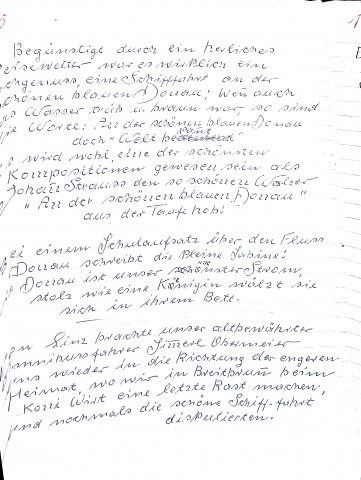 5
1
Begünstige durch ein herliches
eisewetter war es wirklich ein
chgenuss, eine Schiffahrt an der
chönen blauen Donau; Wen auch
s Wasser trüb u braun war, so sind
ie Worte: An der schönen blauen Donau
doch "Welt bekannt
s wird wohl, eine der schönsten
Kompositionen gewesen sein als
Johan Strauss den so schönen Walzer
"An der schönen blauen Donau"
aus der Taufe hob!
ei einem Schulaufsatz über den Fluss
Donau schreibt die kleine Sabine!
Donau ist unser schönster Strom,
stolz wie eine Königin wälzt sie
sich in ihrem Bett.
on Linz brachte unser altbewährter
mnibusfahrer Simerl Obermeier
uns wieder in die Richtung der engeren
Heimat, wo wir in Breitbrunn beim
Wirt eine letzte Rast machen,
und nochmals die schöne Schiff-fahrt
diskulierten.